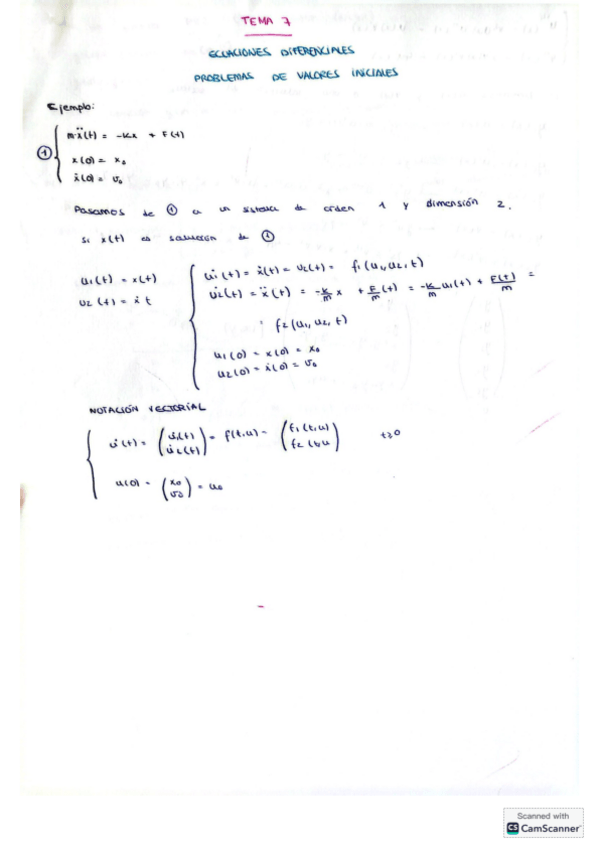 TEMA 7
ECUACIONES DIFERENCIALES
PROBLEMAS DE VALORES INICIALES
Ejemplo:
① { mẍ(t) = -kx + F(t)
x(0) = x₀
ẋ(0) = v₀
Pasamos de ① a un sistema de orden 1 y dimensión 2.
Si x(t) es solución de ①
u₁(t) = x(t)
u₂(t) = ẋ t
{ u̇₁(t) = ẋ(t) = u₂(t) = f₁(u₁,u₂,t)
u̇₂(t) = ẍ(t) = -k/m x + F/m (t) = -k/m u₁(t) + F(t)/m =
= f₂(u₁,u₂,t)
u₁(0) = x(0) = x₀
u₂(0) = ẋ(0) = v₀
NOTACIÓN VECTORIAL
{ u̇(t) = (u̇₁(t) u̇₂(t)) = f(t,u) = (f₁(t,u) f₂(t,u) t≥0
u(0) = (x₀ v₀) = u₀
Scanned with
CS CamScanner